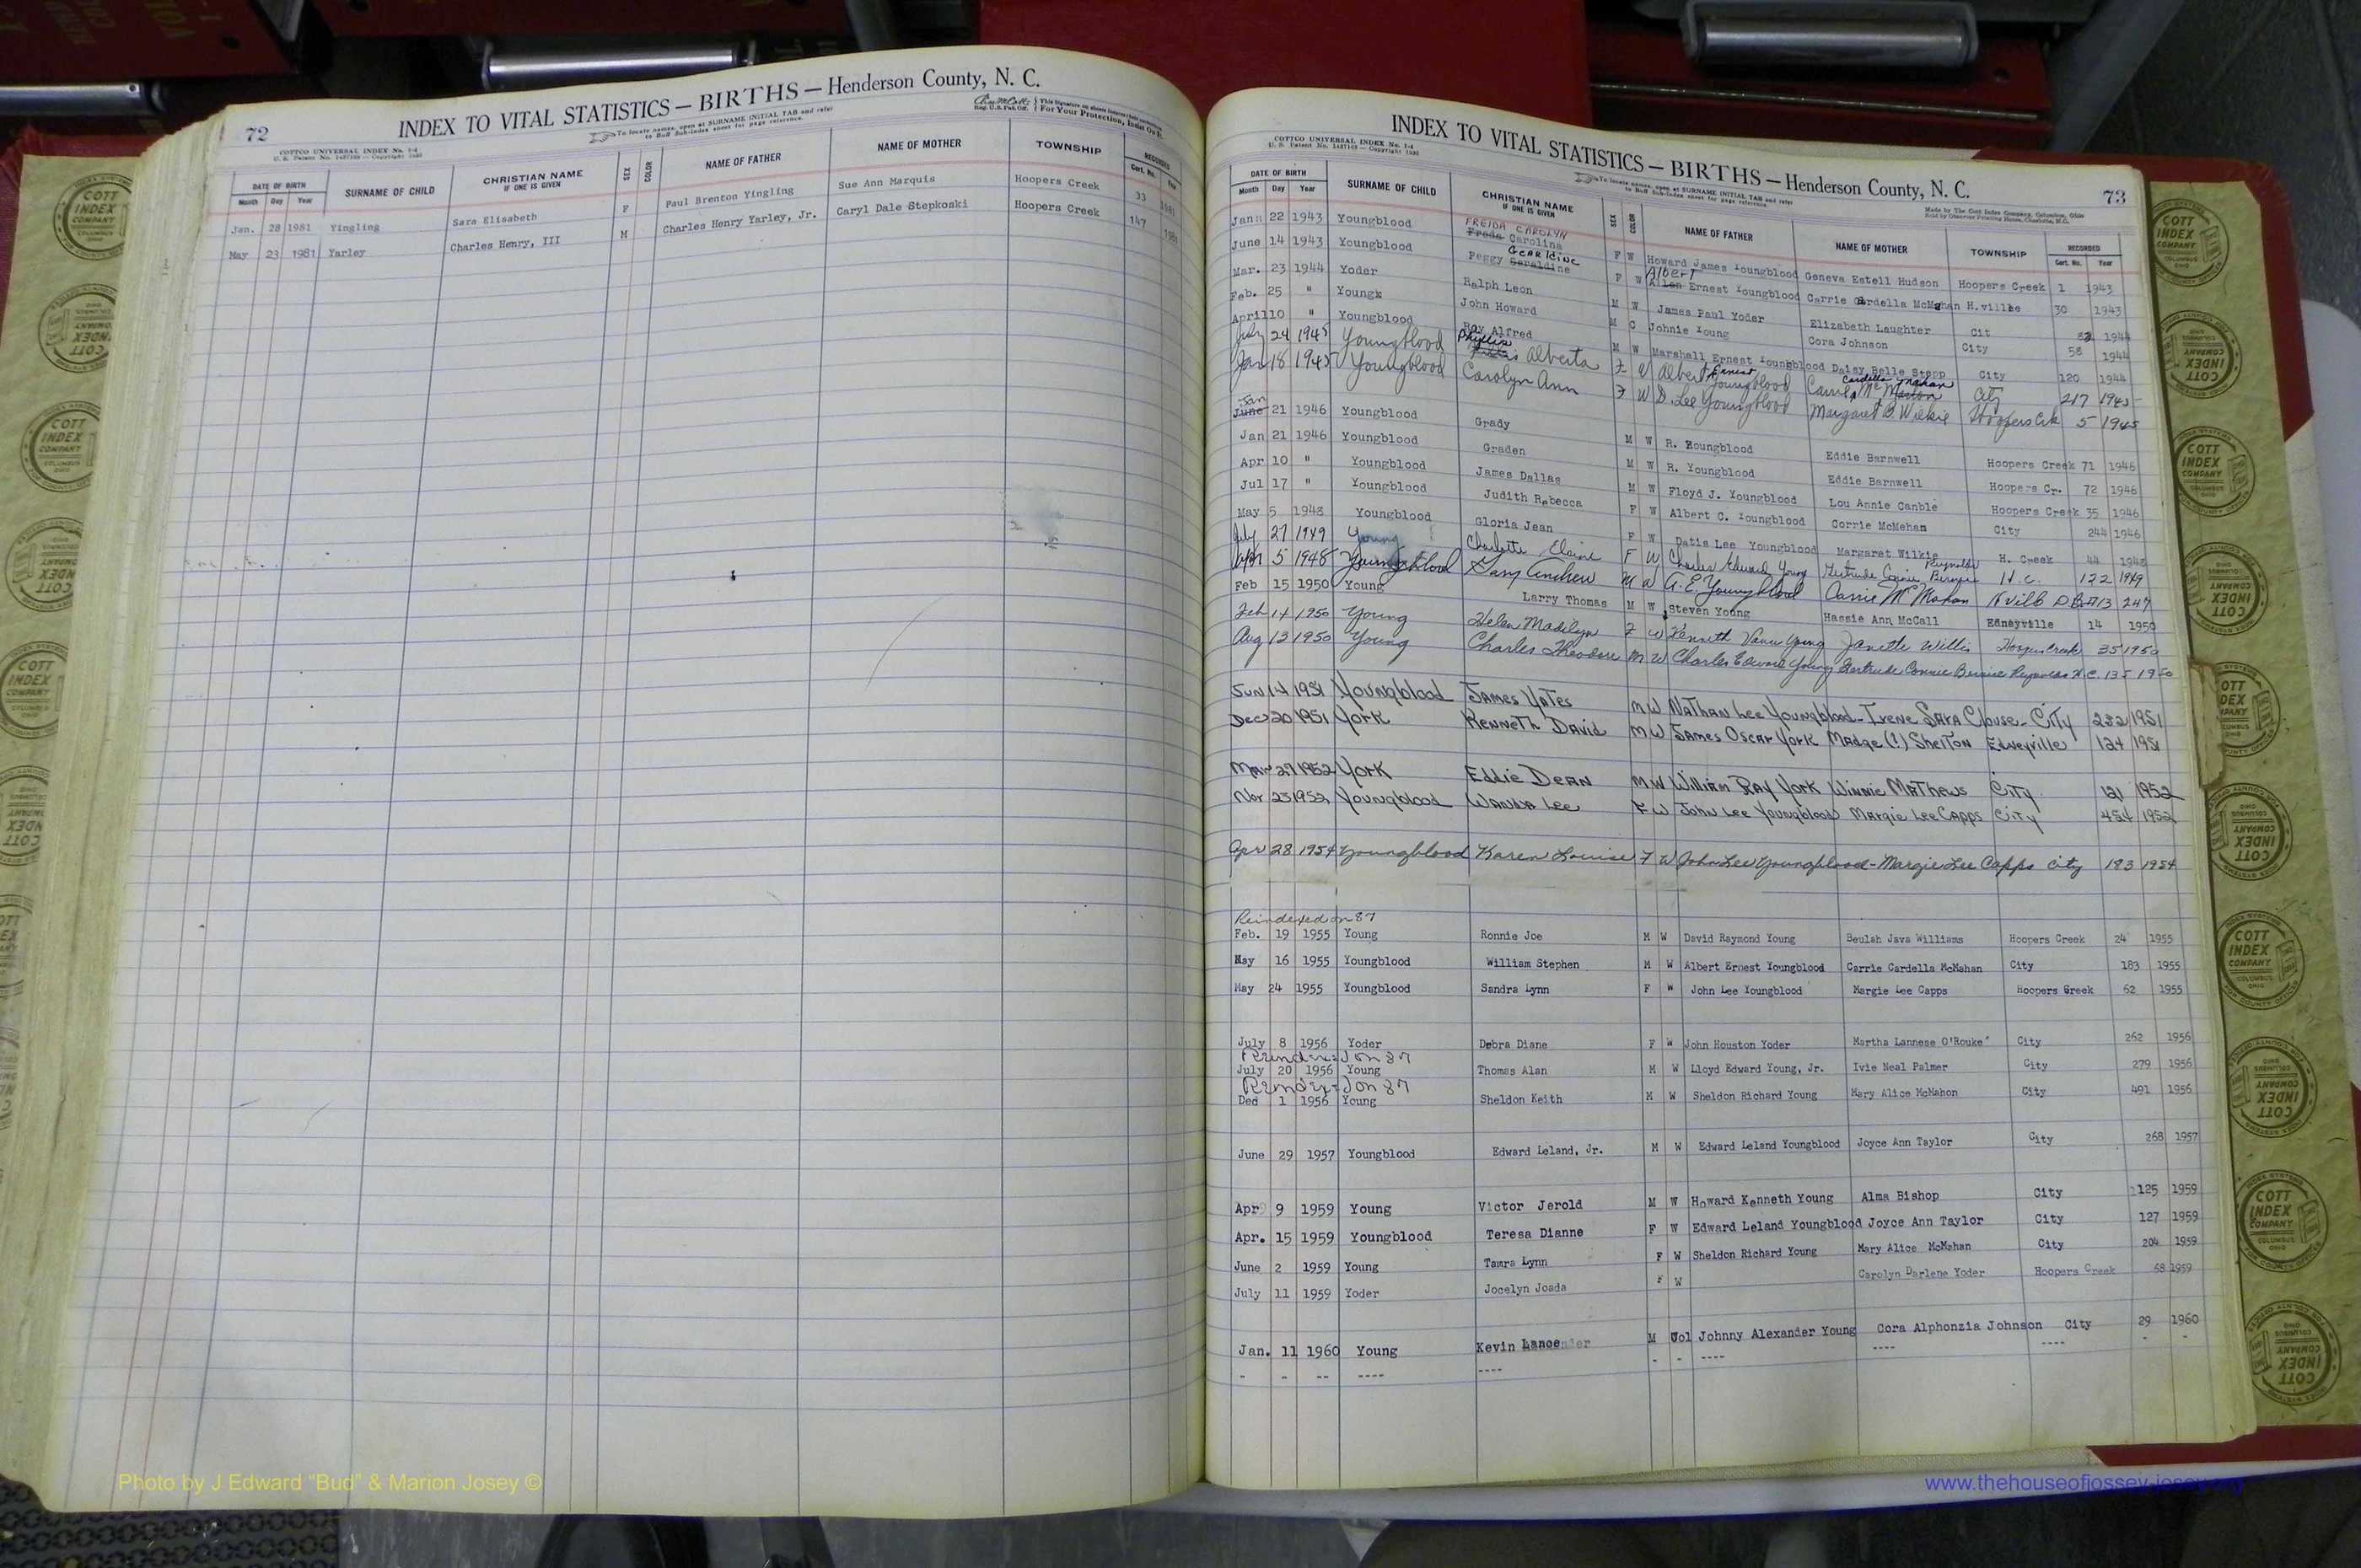 72
INDEX TO VITAL STATISTICS — BIRTHS — Henderson County, N. C.
COTTCO UNIVERSAL INDEX No. 1-4
To locate names, open at SURNAME INITIAL TAB and refer
to Buff Sub-Index sheet for page reference.
DATE OF BIRTH
Month Day Year
SURNAME OF CHILD
CHRISTIAN NAME
IF ONE IS GIVEN
SEX
COLOR
NAME OF FATHER
NAME OF MOTHER
TOWNSHIP
RECORDED
Cert. No. Year
Jan. 28 1981 Yingling Sara Elisabeth F Paul Brenton Yingling Sue Ann Marquis Hoopers Creek 33 1981
May 23 1981 Yarley Charles Henry, III M Charles Henry Yarley, Jr. Caryl Dale Stepkoski Hoopers Creek 147 1981
INDEX TO VITAL STATISTICS — BIRTHS — Henderson County, N. C.
73
COTTCO UNIVERSAL INDEX No. 1-4
To locate names, open at SURNAME INITIAL TAB and refer
to Buff Sub-Index sheet for page reference.
DATE OF BIRTH
Month Day Year
SURNAME OF CHILD
CHRISTIAN NAME
IF ONE IS GIVEN
SEX
COLOR
NAME OF FATHER
NAME OF MOTHER
TOWNSHIP
RECORDED
Cert. No. Year
FREIDA CAROLYN
Jann 22 1943 Youngblood Freda Carolina F W Howard James Youngblood Geneva Estell Hudson Hoopers Creek 1 1943
June 14 1943 Youngblood Peggy Geraldine F W Ernest Youngblood Carrie H.ville 30 1943
Mar. 23 1944 Yoder Ralph Leon M W James Paul Yoder Elizabeth Laughter Cit 1944
Feb. 25 " Young John Howard M C Johnie Young Cora Johnson City 58 1944
April 10 " Youngblood Roy Alfred M W Marshall Ernest Youngblood Daisy Belle Stepp City 120 1944
July 24 1945 Youngblood Phyllis Alberta F W Albert Ernest Youngblood City 217 1945
Jan 18 1945 Youngblood Carolyn Ann F W D. Lee Youngblood Margaret B. Wilkie Hoopers Crk 5 1945
Jan
June 21 1946 Youngblood Grady M W R. Youngblood Eddie Barnwell Hoopers Creek 71 1946
Jan 21 1946 Youngblood Graden M W R. Youngblood Eddie Barnwell Hoopers Cr. 72 1946
Apr 10 " Youngblood James Dallas M W Floyd J. Youngblood Lou Annie Canble Hoopers Creek 35 1946
Jul 17 " Youngblood Judith Rebecca F W Albert C. Youngblood Corrie McMehan City 244 1946
May 5 1948 Youngblood Gloria Jean F W Datis Lee Youngblood Margaret Wilkie H. Creek 44 1948
July 27 1949 Young Charlotte Elaine F W Charles Edward Young Gertrude Connie Bernice Reynolds H.C. 122 1949
Apr 5 1948 Youngblood Gary Andrew M W A. E. Youngblood Carrie McMahan 247
Feb 15 1950 Young Larry Thomas M W Steven Young Hassie Ann McCall Edneyville 14 1950
Feb 14 1950 Young Helen Madilyn F W Kenneth Vance Young Janette Willis Hoopers Creek 35 1950
Aug 13 1950 Young Charles Theodore M W Charles Edward Young Gertrude Connie Bernice Reynolds H.C. 135 1950
Jun 14 1951 Youngblood James Yates M W Nathan Lee Youngblood - Irene Sara Clouse - City 232 1951
Dec 20 1951 York Kenneth David M W James Oscar York Madge (!) Shelton Edneyville 124 1951
Mar 27 1952 York Eddie Dean M W William Ray York Winnie Mathews City 121 1952
Nov 23 1952 Youngblood Wanda Lee F W John Lee Youngblood Margie Lee Capps City 454 1952
Apr 28 1954 Youngblood Karen Louise F W John Lee Youngblood - Margie Lee Capps City 183 1954
Reindexed on 87
Feb. 19 1955 Young Ronnie Joe M W David Raymond Young Beulah Java Williams Hoopers Creek 24 1955
May 16 1955 Youngblood William Stephen M W Albert Ernest Youngblood Carrie Cardella McMahan City 183 1955
May 24 1955 Youngblood Sandra Lynn F W John Lee Youngblood Margie Lee Capps Hoopers Creek 62 1955
July 8 1956 Yoder Debra Diane F W John Houston Yoder Martha Lannese O'Rouke City 262 1956
Reindexed on 87
July 20 1956 Young Thomas Alan M W Lloyd Edward Young, Jr. Ivie Neal Palmer City 279 1956
Reindexed on 87
Ded 1 1956 Young Sheldon Keith M W Sheldon Richard Young Mary Alice McMahon City 491 1956
June 29 1957 Youngblood Edward Leland, Jr. M W Edward Leland Youngblood Joyce Ann Taylor City 268 1957
Apr 9 1959 Young Victor Jerold M W Howard Kenneth Young Alma Bishop City 125 1959
Apr. 15 1959 Youngblood Teresa Dianne F W Edward Leland Youngblood Joyce Ann Taylor City 127 1959
June 2 1959 Young Tamra Lynn F W Sheldon Richard Young Mary Alice McMahan City 204 1959
July 11 1959 Yoder Jocelyn Joada F W Carolyn Darlene Yoder Hoopers Creek 68 1959
Jan. 11 1960 Young Kevin Lance M Col Johnny Alexander Young Cora Alphonzia Johnson City 29 1960
- - -- ---- ---- - - ---- ---- ---- - -
Photo by J Edward "Bud" & Marion Josey ©
www.thehouseofjossey-josey.org
COTT
INDEX
COMPANY